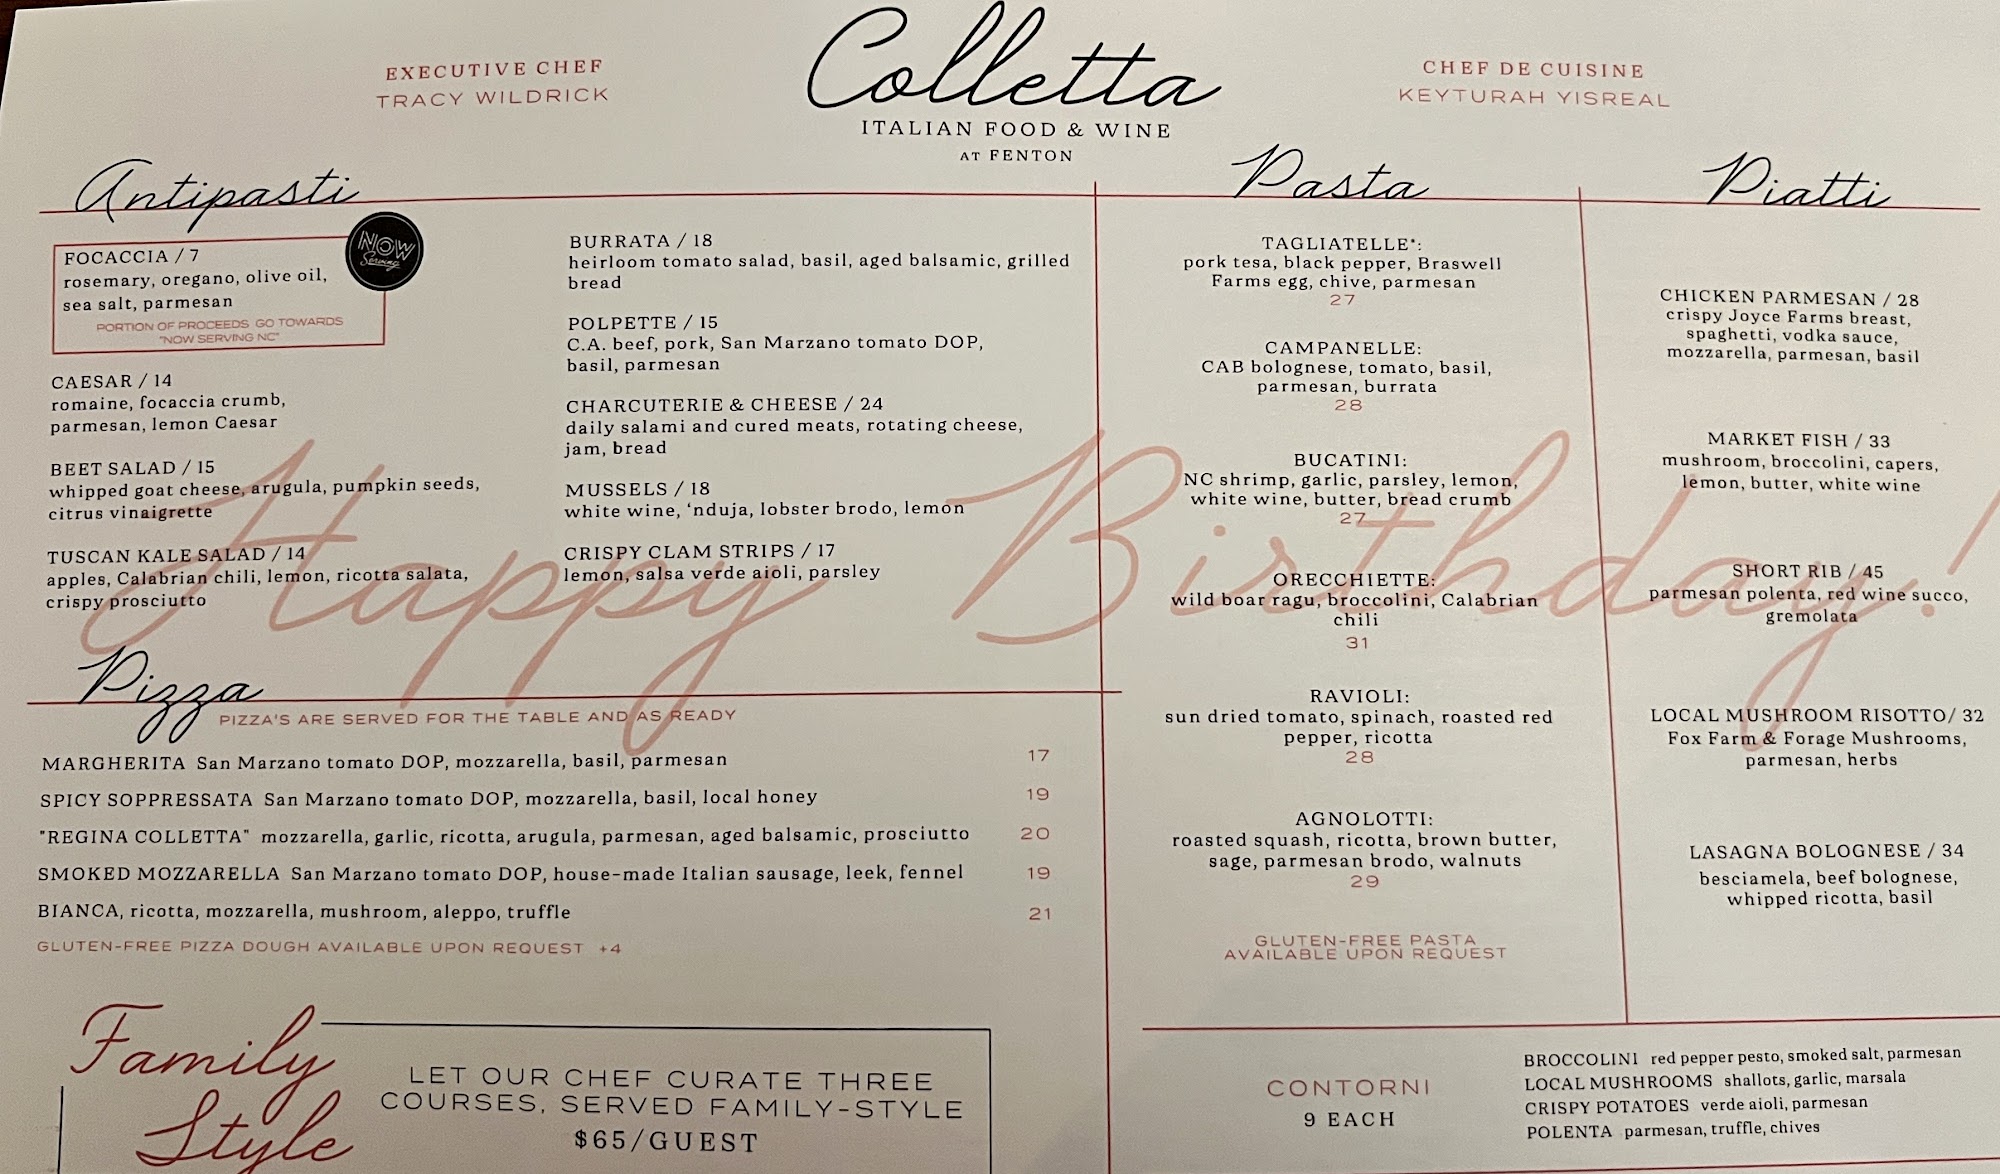 EXECUTIVE CHEF
TRACY WILDRICK
Colletta
ITALIAN FOOD & WINE
AT FENTON
CHEF DE CUISINE
KEYTURAH YISREAL
Antipasti
FOCACCIA / 7
rosemary, oregano, olive oil,
sea salt, parmesan
PORTION OF PROCEEDS GO TOWARDS
"NOW SERVING NC"
NOW
Serving
CAESAR / 14
romaine, focaccia crumb,
parmesan, lemon Caesar
BEET SALAD / 15
whipped goat cheese, arugula, pumpkin seeds,
citrus vinaigrette
TUSCAN KALE SALAD / 14
apples, Calabrian chili, lemon, ricotta salata,
crispy prosciutto
BURRATA / 18
heirloom tomato salad, basil, aged balsamic, grilled
bread
POLPETTE / 15
C.A. beef, pork, San Marzano tomato DOP,
basil, parmesan
CHARCUTERIE & CHEESE / 24
daily salami and cured meats, rotating cheese,
jam, bread
MUSSELS / 18
white wine, 'nduja, lobster brodo, lemon
CRISPY CLAM STRIPS / 17
lemon, salsa verde aioli, parsley
Happy Birthday!
Pizza
PIZZA'S ARE SERVED FOR THE TABLE AND AS READY
MARGHERITA San Marzano tomato DOP, mozzarella, basil, parmesan 17
SPICY SOPPRESSATA San Marzano tomato DOP, mozzarella, basil, local honey 19
"REGINA COLLETTA" mozzarella, garlic, ricotta, arugula, parmesan, aged balsamic, prosciutto 20
SMOKED MOZZARELLA San Marzano tomato DOP, house-made Italian sausage, leek, fennel 19
BIANCA, ricotta, mozzarella, mushroom, aleppo, truffle 21
GLUTEN-FREE PIZZA DOUGH AVAILABLE UPON REQUEST +4
Family
Style
LET OUR CHEF CURATE THREE
COURSES, SERVED FAMILY-STYLE
$65/GUEST
Pasta
TAGLIATELLE*:
pork tesa, black pepper, Braswell
Farms egg, chive, parmesan
27
CAMPANELLE:
CAB bolognese, tomato, basil,
parmesan, burrata
28
BUCATINI:
NC shrimp, garlic, parsley, lemon,
white wine, butter, bread crumb
27
ORECCHIETTE:
wild boar ragu, broccolini, Calabrian
chili
31
RAVIOLI:
sun dried tomato, spinach, roasted red
pepper, ricotta
28
AGNOLOTTI:
roasted squash, ricotta, brown butter,
sage, parmesan brodo, walnuts
29
GLUTEN-FREE PASTA
AVAILABLE UPON REQUEST
Piatti
CHICKEN PARMESAN / 28
crispy Joyce Farms breast,
spaghetti, vodka sauce,
mozzarella, parmesan, basil
MARKET FISH / 33
mushroom, broccolini, capers,
lemon, butter, white wine
SHORT RIB / 45
parmesan polenta, red wine succo,
gremolata
LOCAL MUSHROOM RISOTTO/ 32
Fox Farm & Forage Mushrooms,
parmesan, herbs
LASAGNA BOLOGNESE / 34
besciamela, beef bolognese,
whipped ricotta, basil
CONTORNI
9 EACH
BROCCOLINI red pepper pesto, smoked salt, parmesan
LOCAL MUSHROOMS shallots, garlic, marsala
CRISPY POTATOES verde aioli, parmesan
POLENTA parmesan, truffle, chives